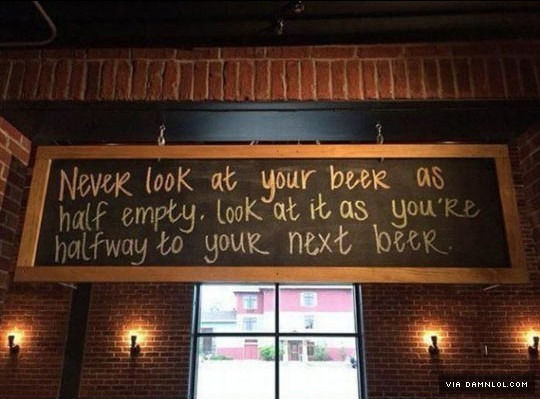 Never look at your beer as
half empty. look at it as you're
halfway to your next beer.
VIA DAMNLOL.COM